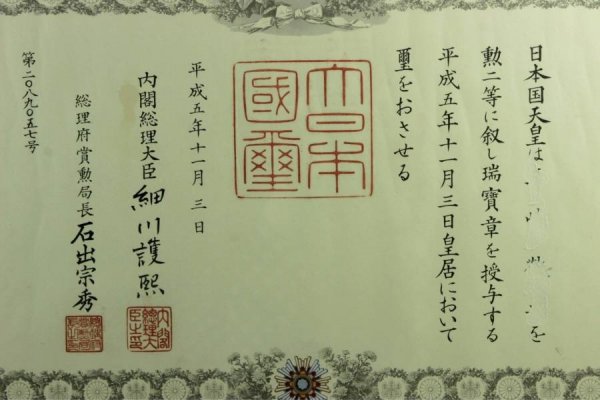 日本国天皇は を
勲二等に叙し瑞寶章を授与する
平成五年十一月三日皇居において
璽をおさせる
大日本國璽
平成五年十一月三日
内閣総理大臣 細川護熙
内閣総理大臣之印
総理府賞勲局長 石出宗秀
第二〇八九〇五七号